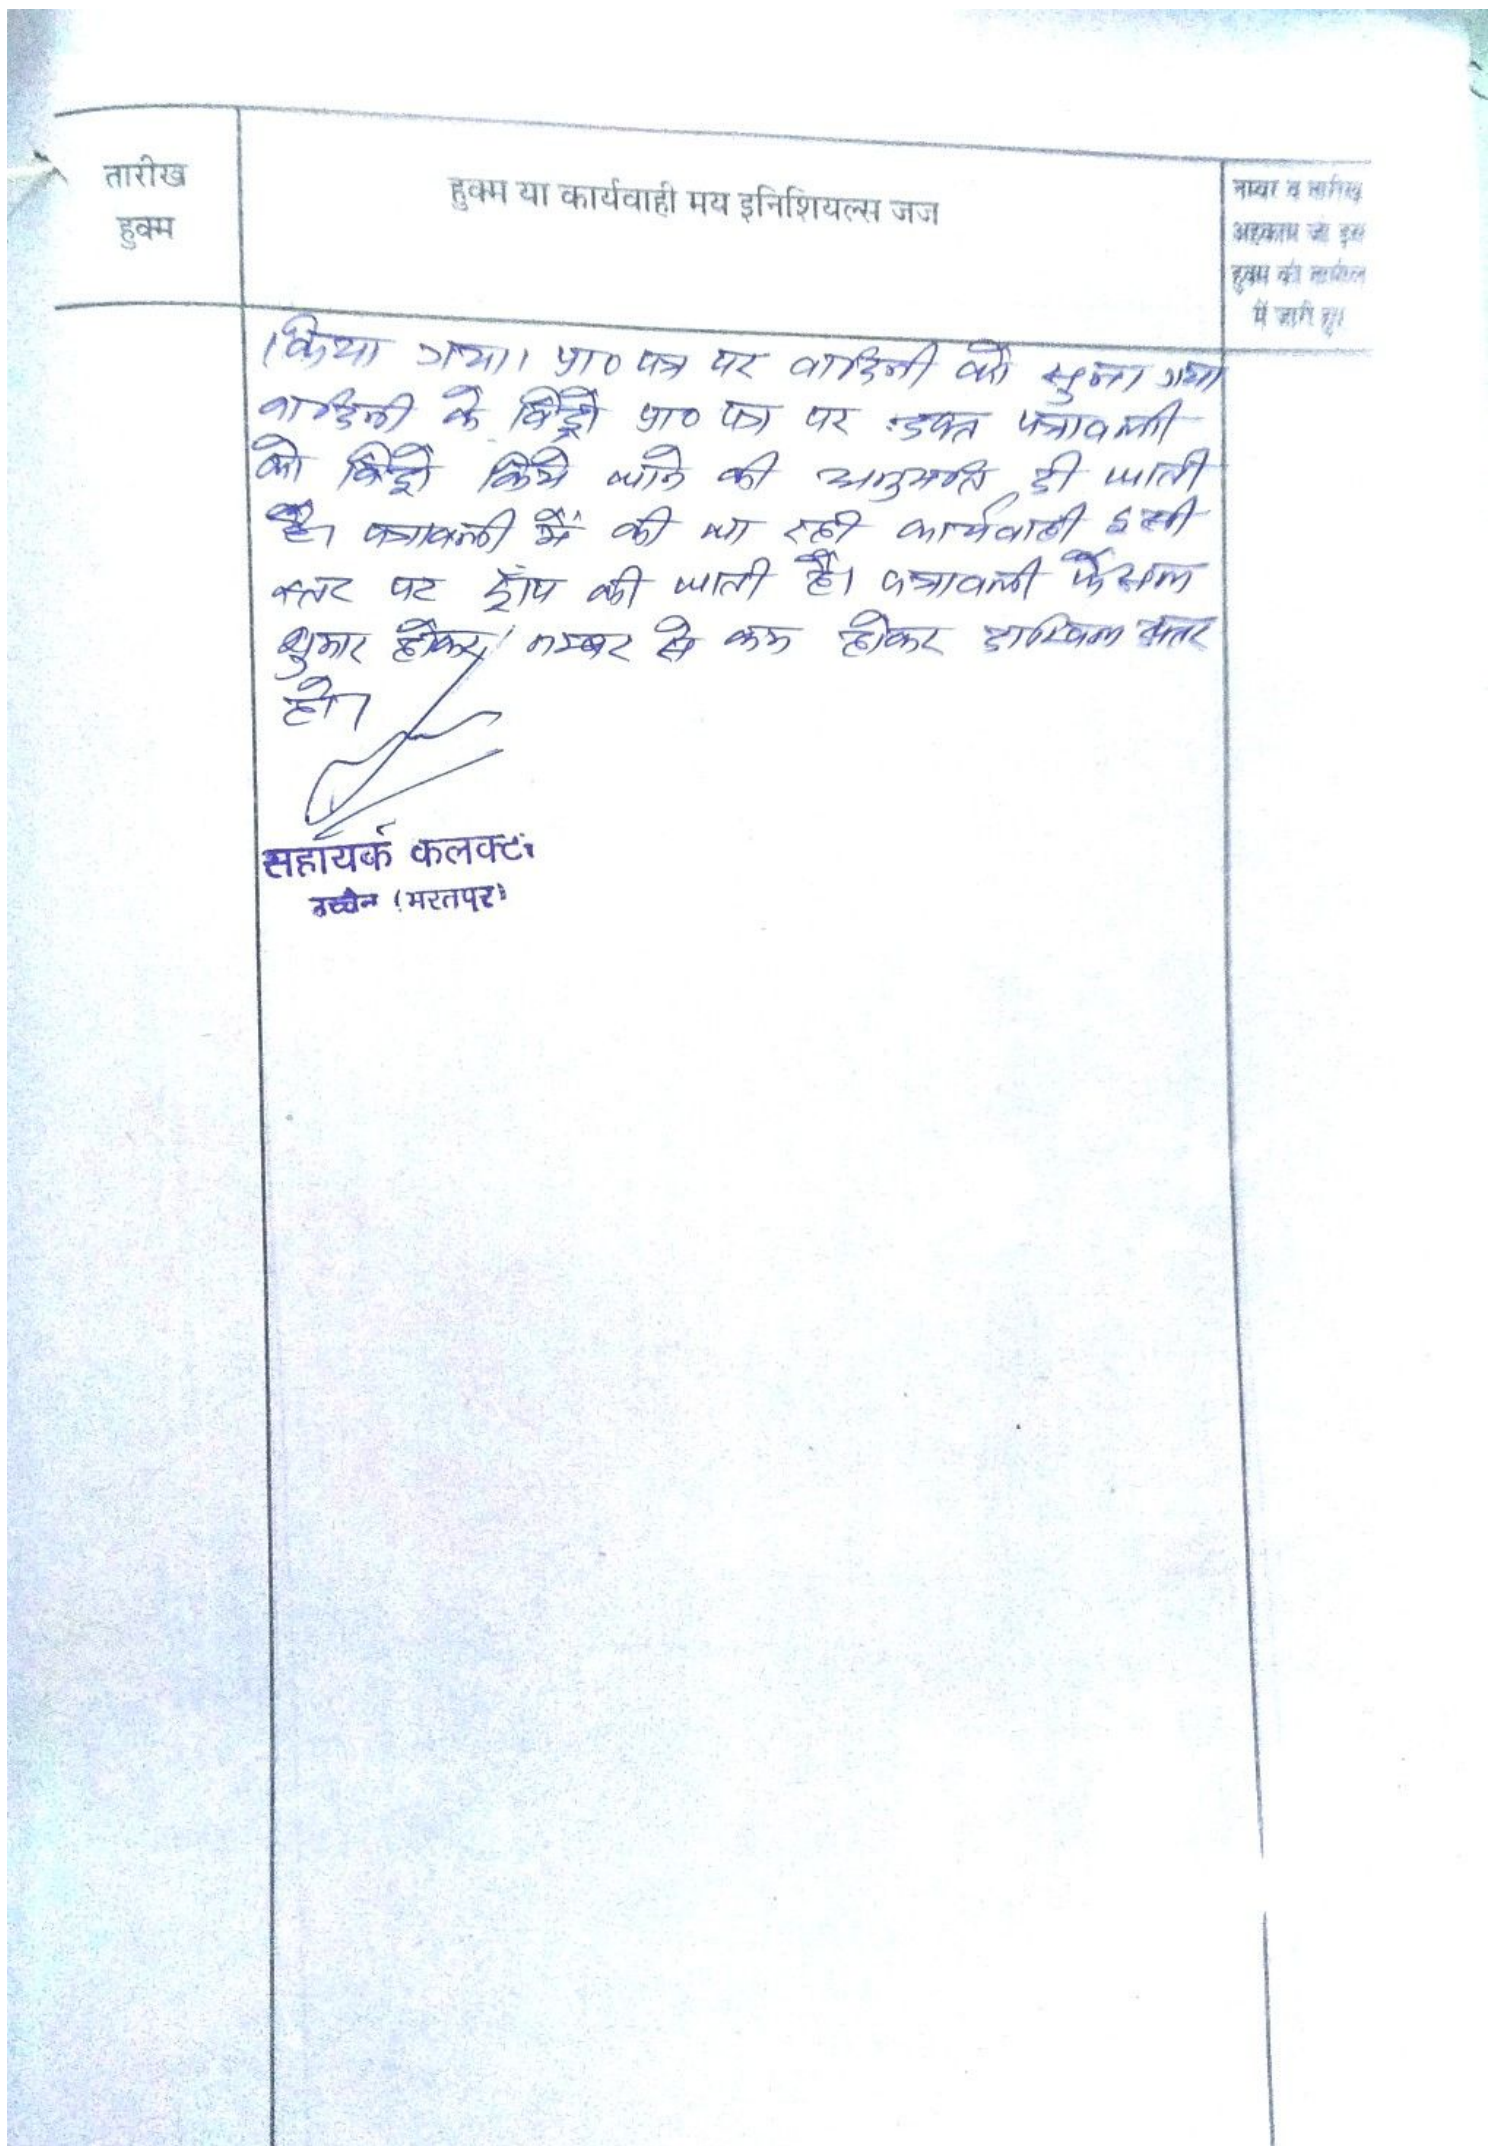 तारीख
हुक्म
हुक्म या कार्यवाही मय इनिशियल्स जज
नम्बर व तारीख
अहकाम जो इस
हुक्म की तामील
में जारी हुए
किया गया। प्रा० पत्र पर वादिनी को सुना गया
वादिनी के विड्रो प्रा० पत्र पर उक्त पत्रावली
को विड्रो किये जाने की अनुमति दी जाती
है। पत्रावली में की जा रही कार्यवाही इसी
स्तर पर ड्रॉप की जाती है। पत्रावली फैसल
शुमार होकर नम्बर से कम होकर दाखिल दफ्तर
हो।
सहायक कलक्टर
उच्चैन (भरतपुर)